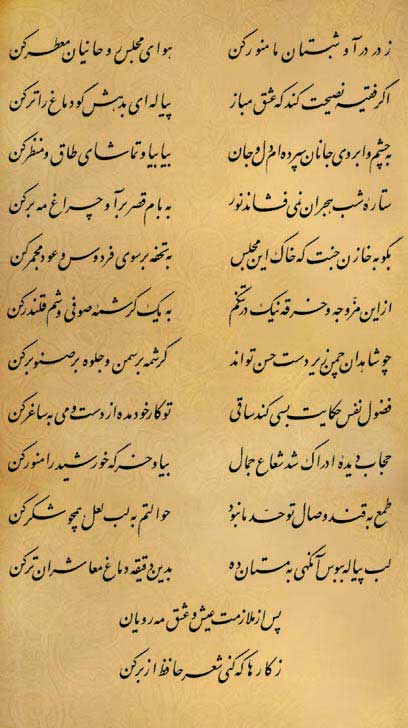 ز در درآ و شبستان ما منور کن هوای مجلس روحانیان معطر کن
اگر فقیه نصیحت کند که عشق مباز پیاله‌ای بدهش گو دماغ را تر کن
به چشم و ابروی جانان سپرده‌ام دل و جان بیا بیا و تماشای طاق و منظر کن
ستارهٔ شب هجران نمی‌فشاند نور به بام قصر برآ و چراغ مه برکن
بگو به خازن جنت که خاک این مجلس به تحفه بر سوی فردوس و عود مجمر کن
از این مزوجه و خرقه نیک در تنگم به یک کرشمهٔ صوفی وشم قلندر کن
چو شاهدان چمن زیردست حسن تواند کرشمه بر سمن و جلوه بر صنوبر کن
فضول نفس حکایت بسی کند ساقی تو کار خود مده از دست و می به ساغر کن
حجاب دیدهٔ ادراک شد شعاع جمال بیا و خرگه خورشید را منور کن
طمع به قند وصال تو حد ما نبود حوالتم به لب لعل همچو شکر کن
لب پیاله ببوس آنگهی به مستان ده بدین دقیقه دماغ معاشران تر کن
پس از ملازمت عیش و عشق مه‌رویان
ز کارها که کنی شعر حافظ از بر کن